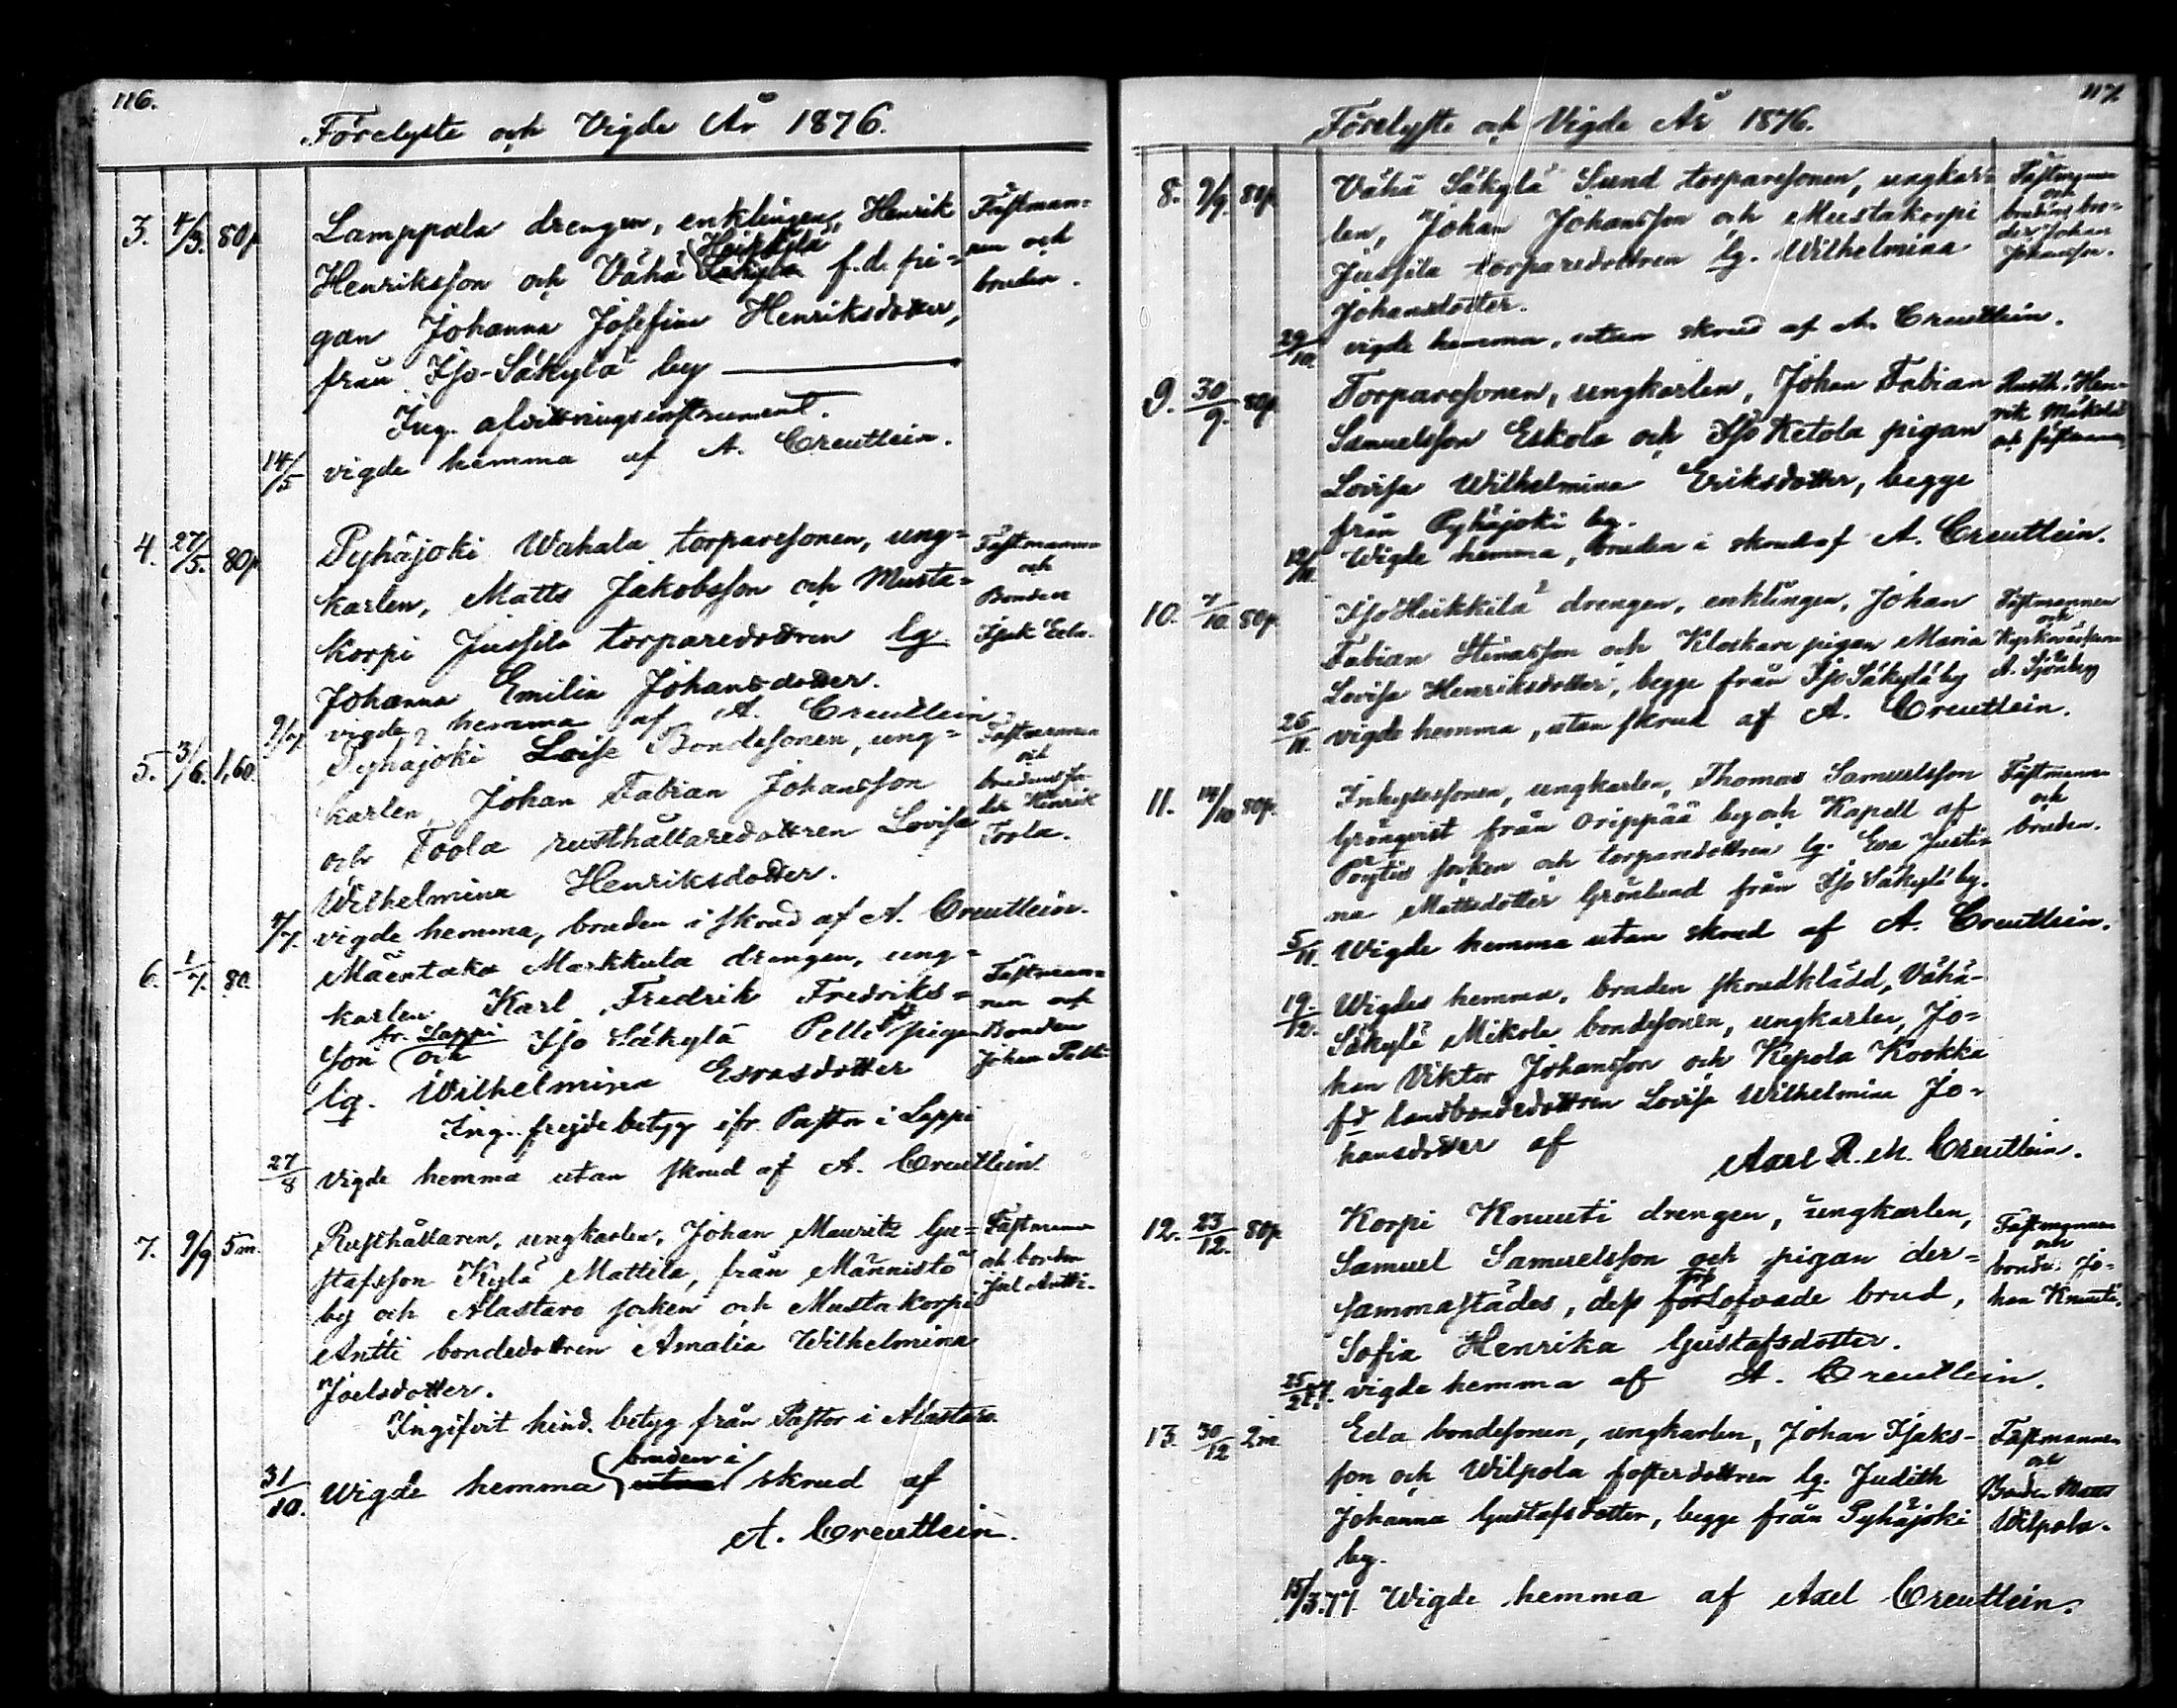 116.
Förelyste och Vigde År 1876.
3. 4/3. 80p Lamppala drengen, enklingen, Henrik
Henriksson och Vähä Heikkilä f.d. pi-
gan Johanna Josefina Henriksdotter,
från Iso-Säkylä by
Ing. afvittringsinstrument.
14/5 vigde hemma af A. Creutlein.
Fästman-
nen och
bruden.
4. 27/5. 80p Pyhäjoki Wahala torparesonen, ung-
karlen, Matts Jakobsson och Musta-
korpi Jussila torparedottren lg.
Johanna Emilia Johansdotter.
9/7 vigde hemma af A. Creutlein
Fästmannen
och
Bonden
Isak Eela.
5. 3/6. 1,60. Pyhäjoki Loise Bondesonen, ung-
karlen, Johan Fabian Johansson
och Toola rusthållaredottren Lovisa
Wilhelmina Henriksdotter.
9/7. vigde hemma, bruden i skrud af A. Creutlein.
Fästmannen
och
brudens fa-
der Henrik
Toola.
6. 1/7. 80. Mäentaka Markkula drengen, ung-
karlen Karl Fredrik Fredriks-
son fr. Lappi och Iso Säkylä Pelto pigan
lg. Wilhelmina Esrasdotter
Ing. frejdebetyg ifr. Pastor i Lappi
27/8 Vigde hemma utan skrud af A. Creutlein
Fästman-
nen och
Bonden
Johan Pelto
7. 9/9 5m. Rusthållaren, ungkarlen, Johan Mauritz Gu-
stafsson Kylä Mattila, från Männistö
by och Alastaro socken och Mustakorpi
Antti bondedottren Amalia Wilhelmina
Joelsdotter.
Ingifvit hind. betyg från Pastor i Alastaro.
31/10. Wigde hemma bruden i skrud af
A. Creutlein.
Fästmannen
och bonden
Joel Antti.
117
Förelyste och Vigde År 1876.
8. 9/9. 80p Vähä Säkylä Sund torparesonen, ungkar-
len, Johan Johansson och Mustakorpi
Jussila torparedottren lg. Wilhelmina
Johansdotter.
29/10. vigde hemma, utan skrud af A. Creutlein.
Fästmannen
och
brudens bro-
der Johan
Johansson.
9. 30/9. 80p Torparesonen, ungkarlen, Johan Fabian
Samuelsson Eskola och Iso Ketola pigan
Lovisa Wilhelmina Eriksdotter, begge
från Pyhäjoki by.
12/11. Wigde hemma, bruden i skrud af A. Creutlein.
Rusth. Hen-
rik Mäkelä
och fästmannen
10. 7/10. 80p. Iso Heikkilä drengen, enklingen, Johan
Fabian Stinasson och Klockare pigan Maria
Lovisa Henriksdotter, begge från Iso Säkylä by
26/11. vigde hemma, utan skrud af A. Creutlein.
Fästmannen
och
Kyrkovärden
A. Sjöberg
11. 14/10 80p. Inhysessonen, ungkarlen, Thomas Samuelsson
Grönqvist från Orippää by och Kapell af
Pöytis socken och torparedottren lg. Eva Justi-
na Mattsdotter Grönlund från Iso Säkylä by.
5/11. Wigde hemma utan skrud af A. Creutlein.
Fästmannen
och
bruden.
19/12. Wigdes hemma, bruden skrudklädd, Vähä-
Säkylä Mikola bondesonen, ungkarlen, Jo-
han Viktor Johansson och Kepola Kookka
fd landbondedottren Lovisa Wilhelmina Jo-
hansdotter af
Axel R. M. Creutlein.
12. 23/12. 80p Korpi Knuuti drengen, ungkarlen,
Samuel Samuelsson och pigan der-
sammastädes, dess förlofvade brud,
Sofia Henrika Gustafsdotter.
25/2 77. vigde hemma af A. Creutlein.
Fästmannen
och
bonde. Jo-
han Knuuti.
13. 30/12 2m Eela bondesonen, ungkarlen, Johan Isaks-
son och Wilpola fosterdottren lg. Judith
Johanna Gustafsdotter, begge från Pyhäjoki
by.
15/3.77. Wigde hemma af Axel Creutlein.
Fästmannen
och
Bonden Matts
Wilpola.